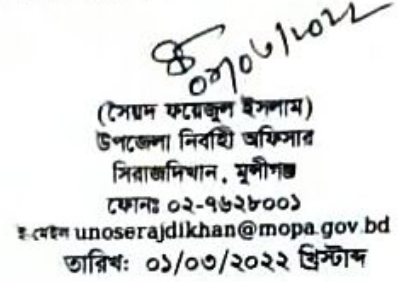 ০১/০৩/২০২২
(সৈয়দ ফয়েজুল ইসলাম)
উপজেলা নির্বাহী অফিসার
সিরাজদিখান, মুন্সীগঞ্জ
ফোনঃ ০২-৭৬২৮০০১
ই-মেইল unoserajdikhan@mopa.gov.bd
তারিখঃ ০১/০৩/২০২২ খ্রিস্টাব্দ